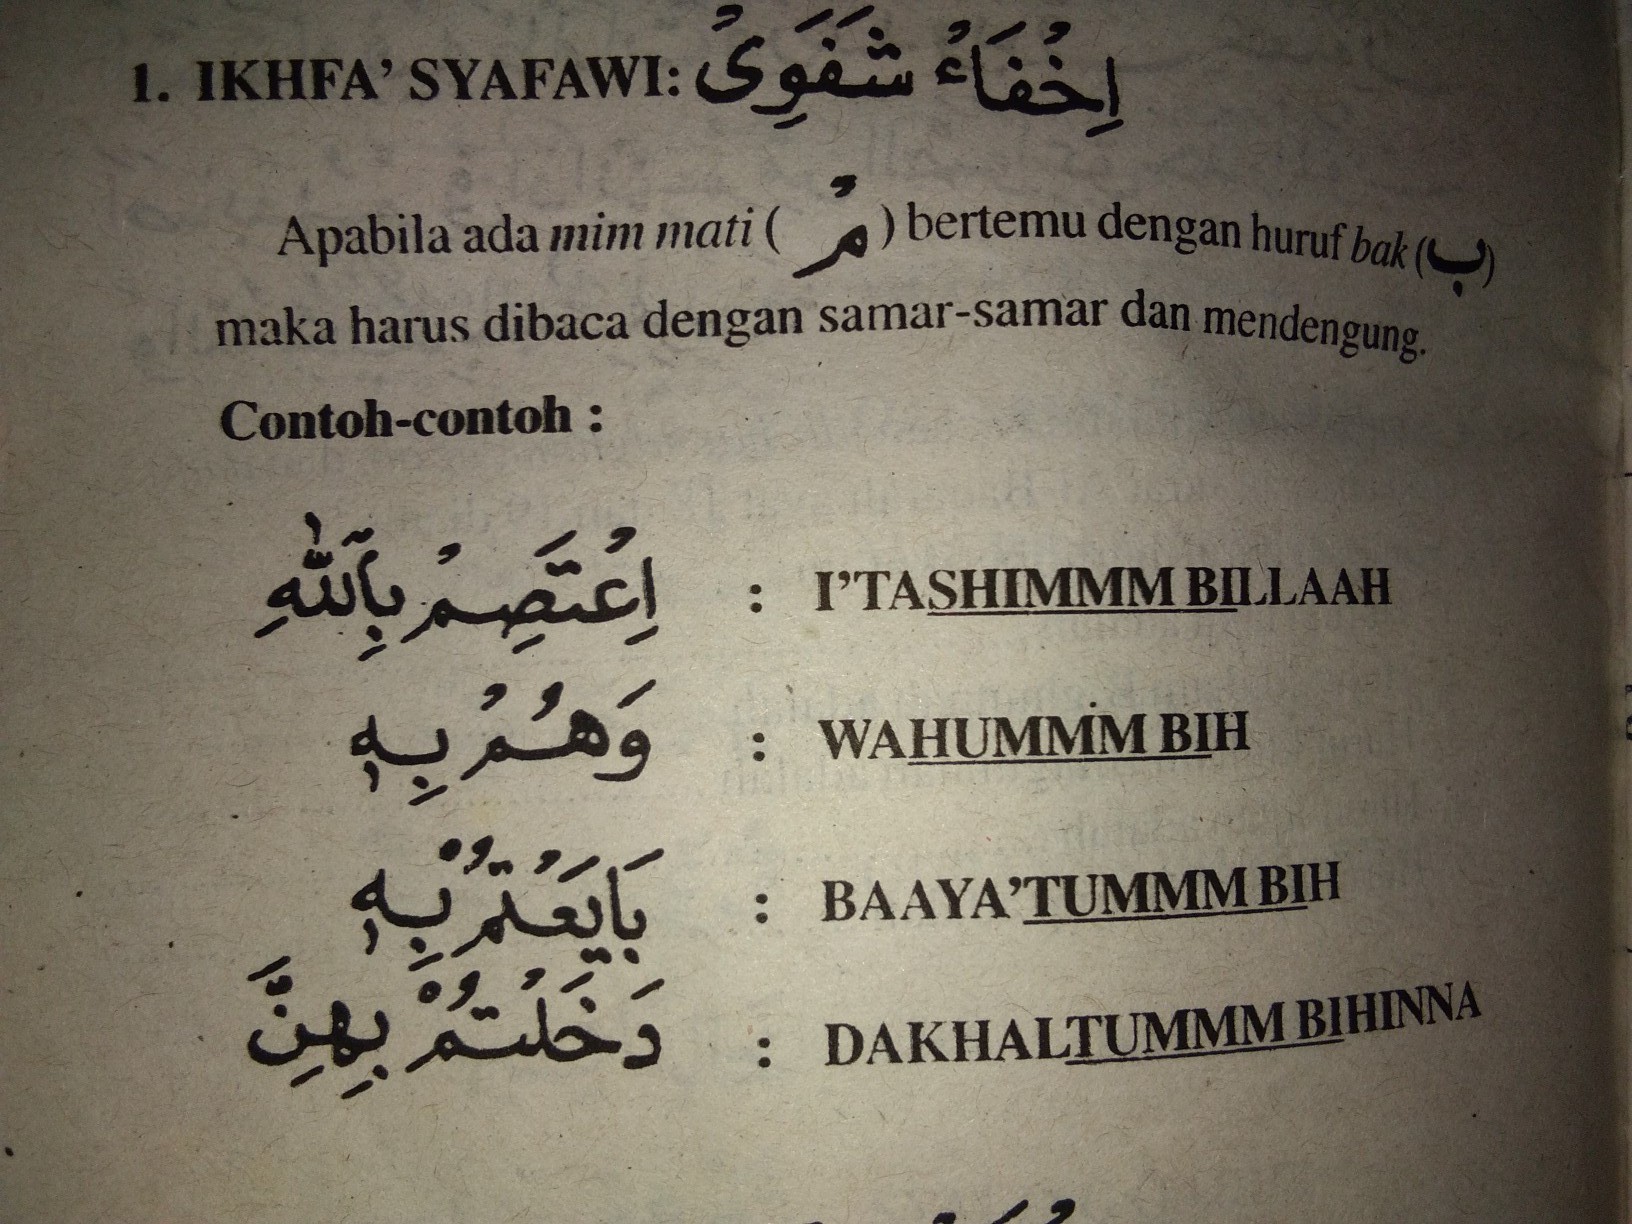 1. IKHFA' SYAFAWI: اِخْفَاءْ شَفَوِىْ
Apabila ada mim mati ( مْ ) bertemu dengan huruf bak (ب)
maka harus dibaca dengan samar-samar dan mendengung.
Contoh-contoh :
اِعْتَصِمْ بِاَللّٰهِ : I'TASHIMMM BILLAAH
وَهُمْ بِهٖ : WAHUMMM BIH
بَايَعْتُمْ بِهٖ : BAAYA'TUMMM BIH
دَخَلْتُمْ بِهِنَّ : DAKHALTUMMM BIHINNA